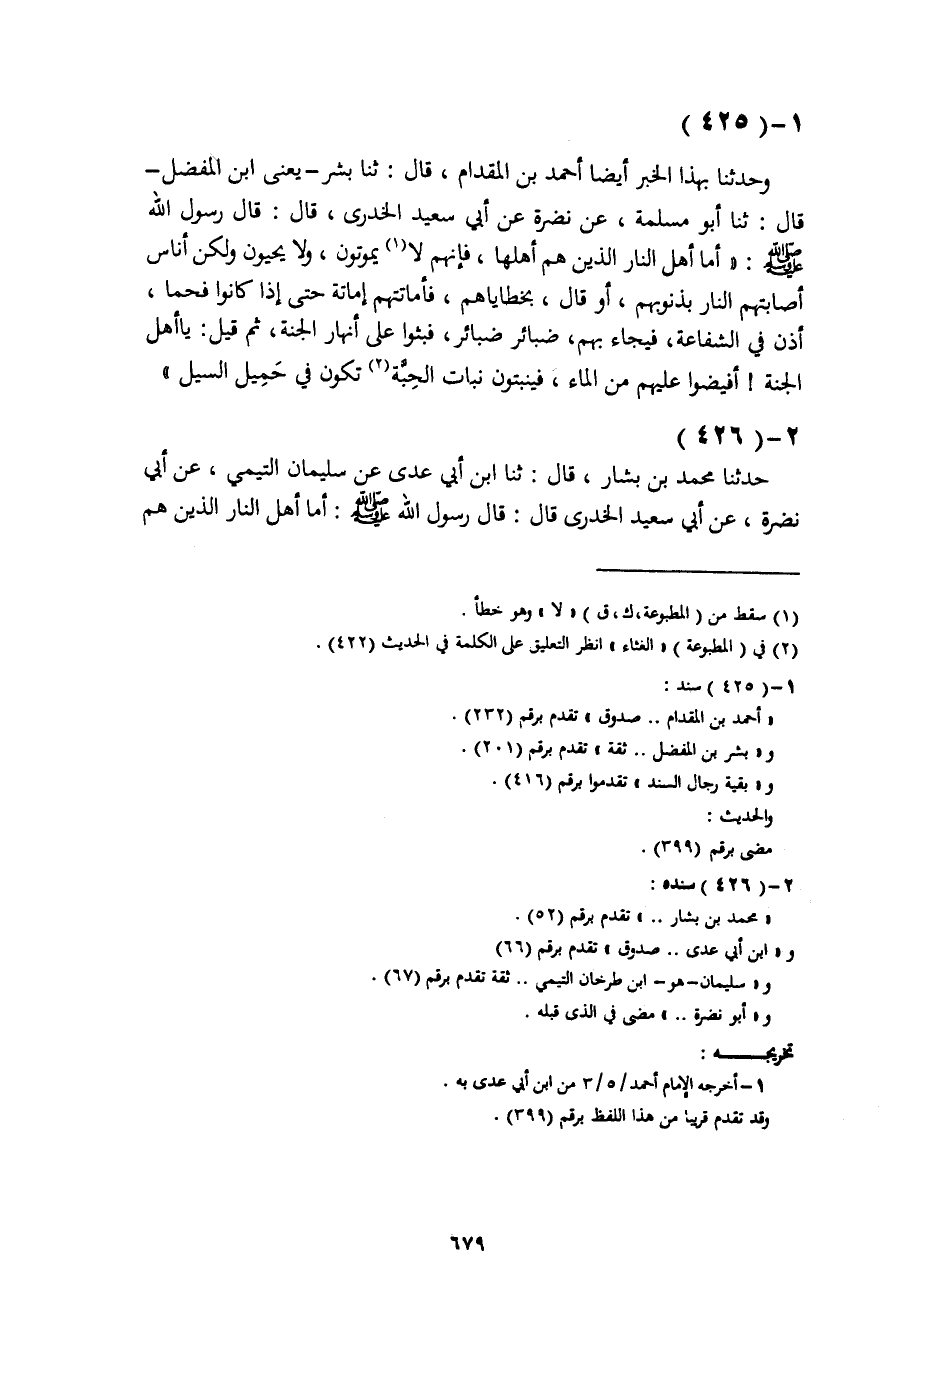 ١-(٤٢٥)
وحدثنا بهذا الخبر أيضا أحمد بن المقدام ، قال : ثنا بشر –يعنى ابن المفضل–
قال : ثنا أبو مسلمة ، عن نضرة عن أبي سعيد الخدرى ، قال : قال رسول الله
ﷺ : « أما أهل النار الذين هم أهلها ، فإنهم لا(١) يموتون ، ولا يحيون ولكن أناس
أصابتهم النار بذنوبهم ، أو قال ، بخطاياهم ، فأماتتهم إماتة حتى إذا كانوا فحما ،
أذن في الشفاعة، فيجاء بهم، ضبائر ضبائر، فبثوا على أنهار الجنة، ثم قيل: ياأهل
الجنة ! أفيضوا عليهم من الماء ، فينبتون نبات الحِبَّة(٢) تكون في حَمِيل السيل »
٢-(٤٢٦)
حدثنا محمد بن بشار ، قال : ثنا ابن أبي عدى عن سليمان التيمي ، عن أبي
نضرة ، عن أبي سعيد الخدرى قال : قال رسول الله ﷺ : أما أهل النار الذين هم
(١) سقط من ( المطبوعة،ك،ق ) « لا » وهو خطأ .
(٢) في ( المطبوعة ) « الغثاء » انظر التعليق على الكلمة في الحديث (٤٢٢) .
١-(٤٢٥) سند :
« أحمد بن المقدام .. صدوق » تقدم برقم (٢٣٢) .
و « بشر بن المفضل .. ثقة » تقدم برقم (٢٠١) .
و « بقية رجال السند » تقدموا برقم (٤١٦) .
والحديث :
مضى برقم (٣٩٩) .
٢-(٤٢٦) سنده :
« محمد بن بشار .. » تقدم برقم (٥٢) .
و « ابن أبي عدى .. صدوق » تقدم برقم (٦٦)
و « سليمان–هو– ابن طرخان التيمي .. ثقة تقدم برقم (٦٧) .
و « أبو نضرة .. » مضى في الذى قبله .
تخريجـــــه :
١-أخرجه الإمام أحمد/٣/٥ من ابن أبي عدى به .
وقد تقدم قريبا من هذا اللفظ برقم (٣٩٩) .
٦٧٩